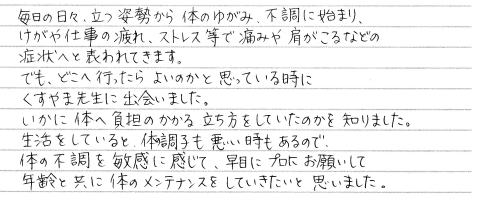 毎日の日々、立つ姿勢から体のゆがみ、不調に始まり、
けがや仕事の疲れ、ストレス等で痛みや肩がこるなどの
症状へと表われてきます。
でも、どこへ行ったらよいのかと思っている時に
くすやま先生に出会いました。
いかに体へ負担のかかる立ち方をしていたのかを知りました。
生活をしていると、体調子も悪い時もあるので、
体の不調を敏感に感じて、早目にプロにお願いして
年齢と共に体のメンテナンスをしていきたいと思いました。